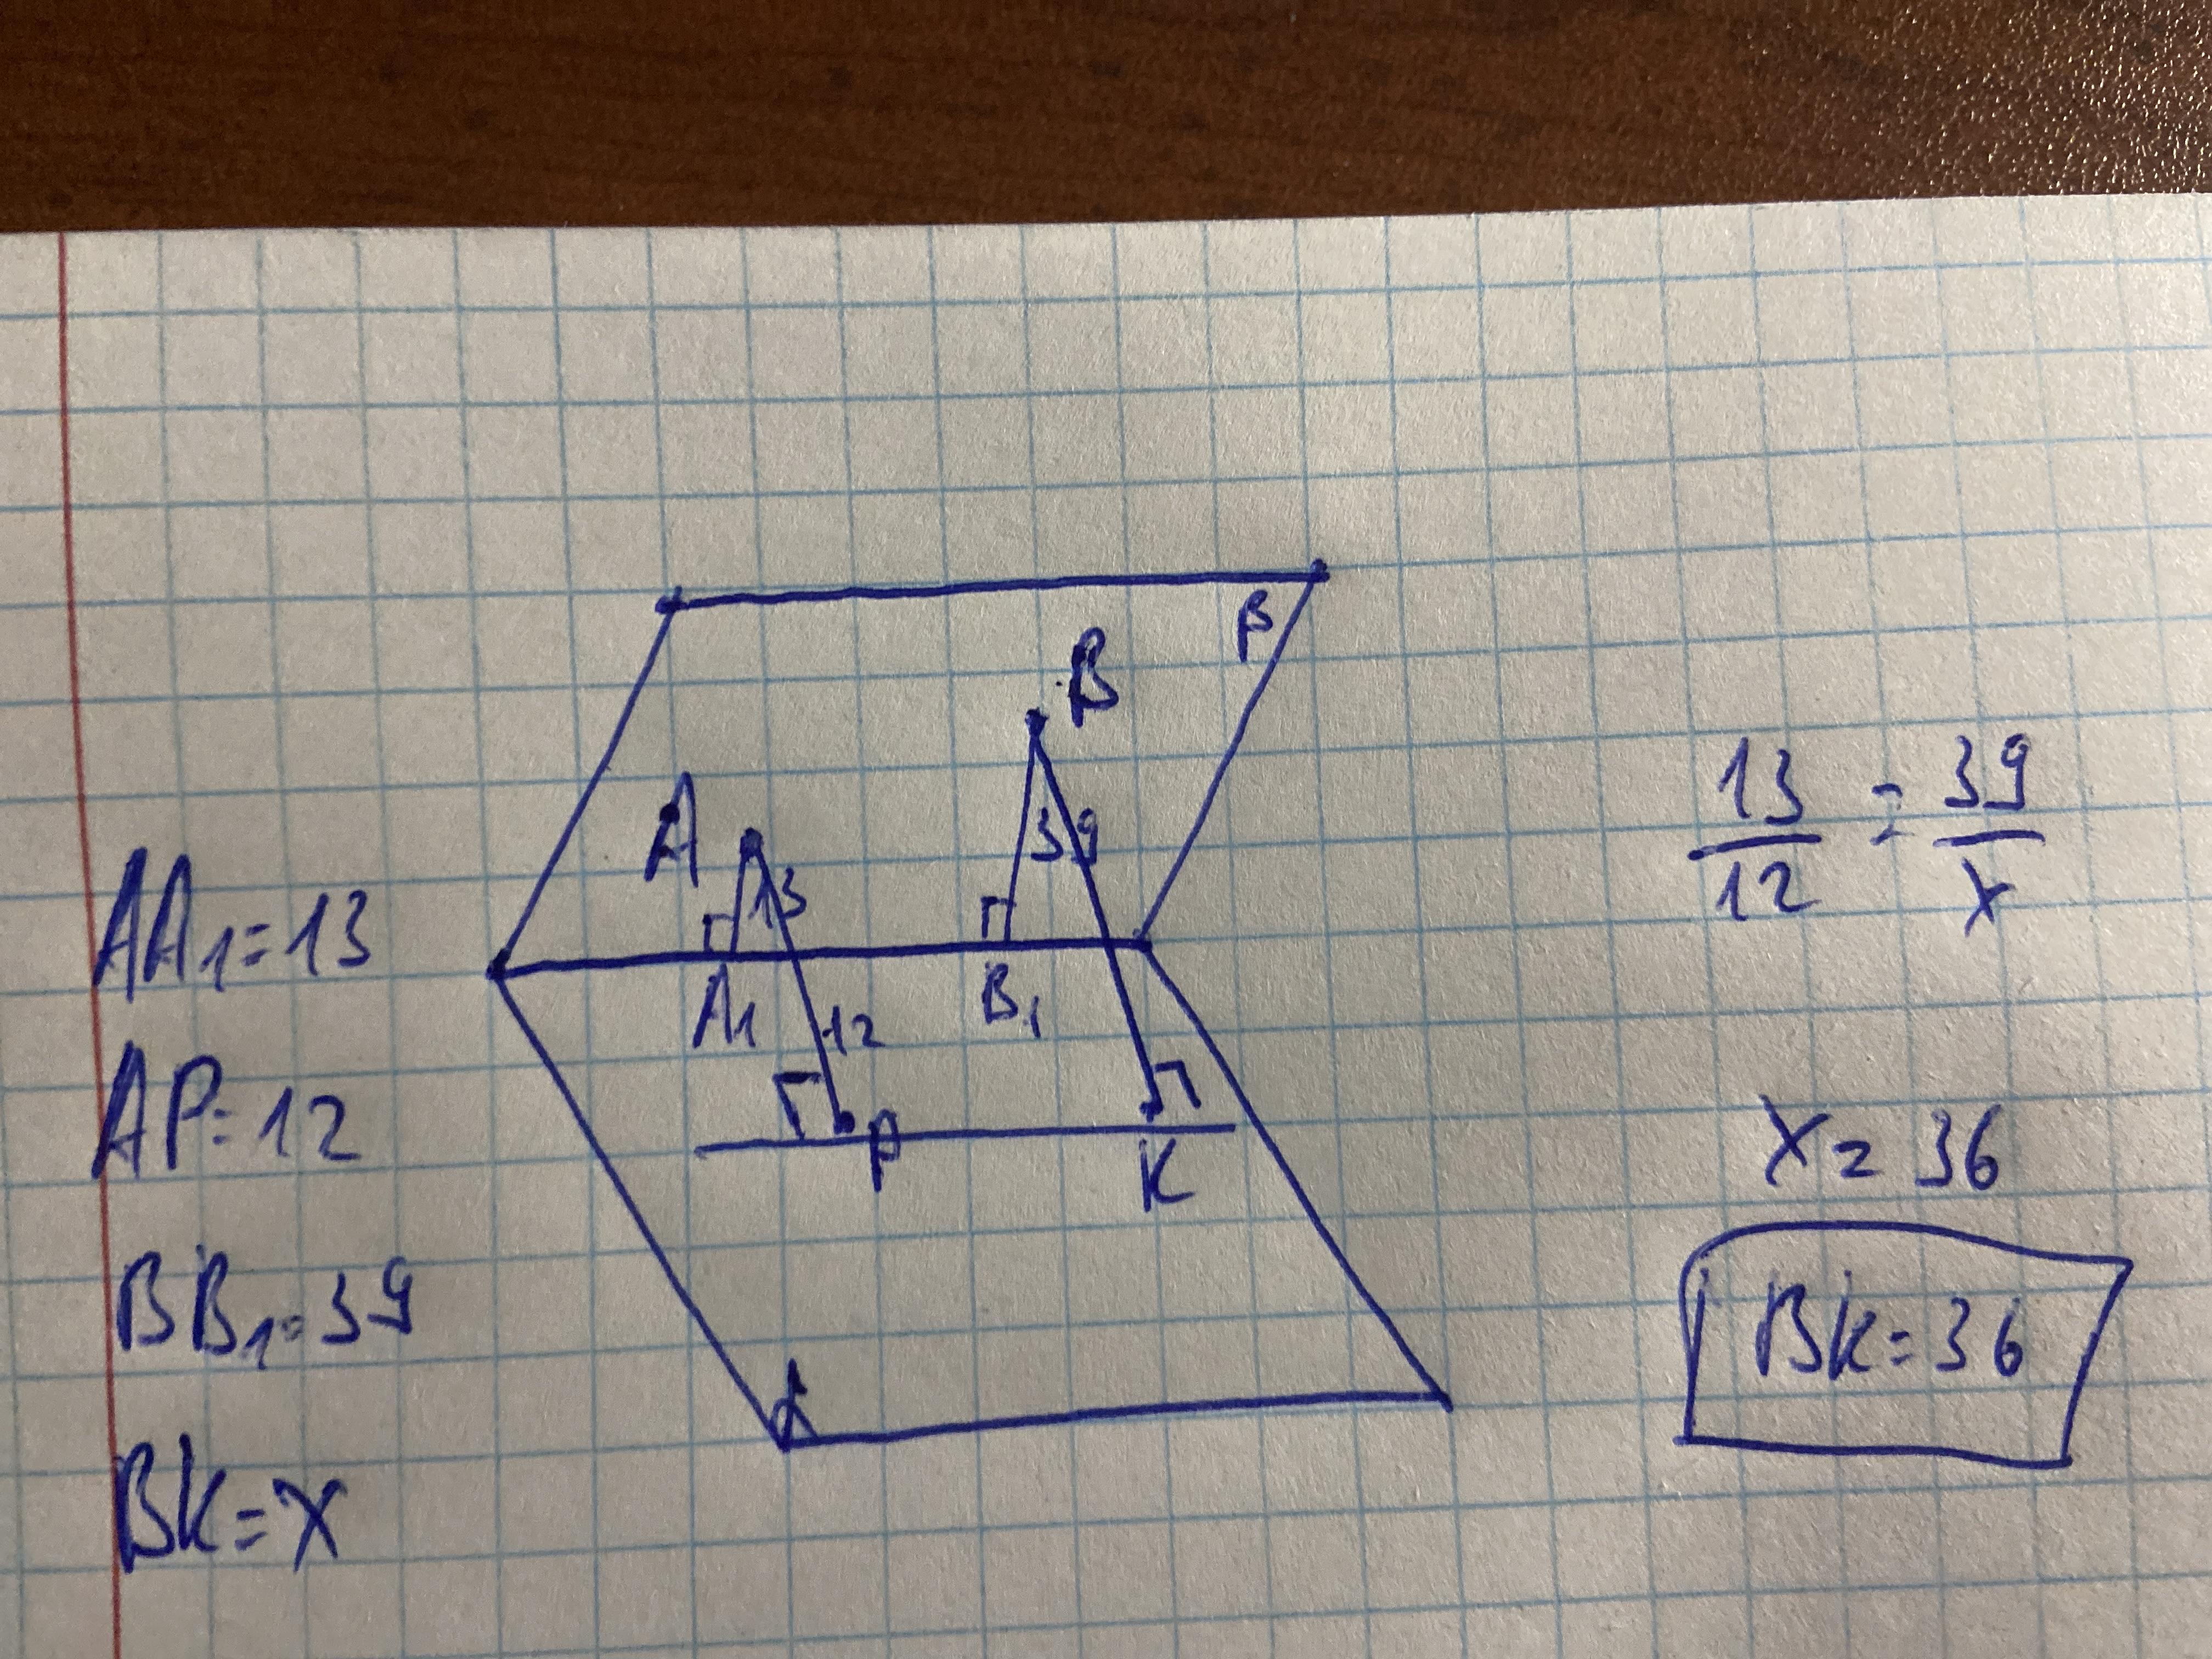 β
B
A
13
39
A₁
B₁
12
P
K
α
AA₁=13
AP=12
BB₁=39
BK=x
13/12 = 39/x
x = 36
BK=36